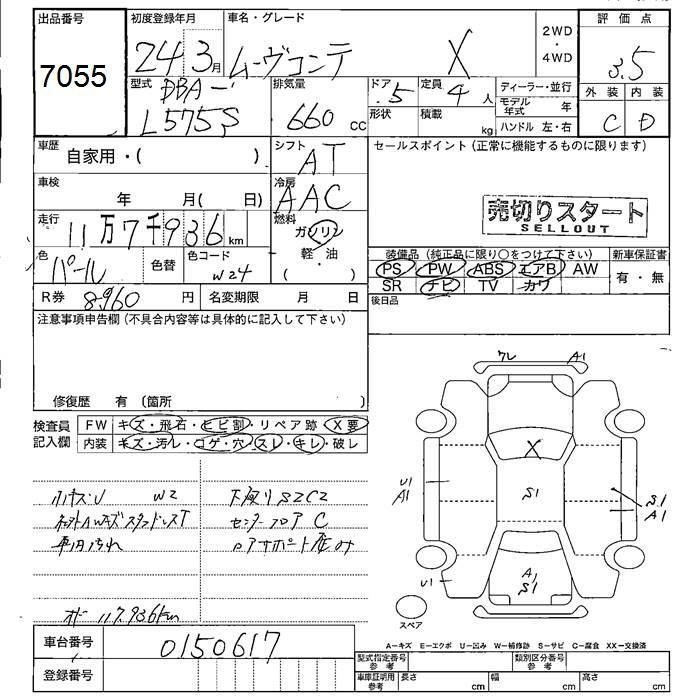 出品番号
7055
初度登録年月
24年3月
車名・グレード
ムーヴコンテ X
2WD
・
4WD
評価点
3.5
外装 内装
C D
型式
DBA-
L575S
排気量
660 cc
ドア .5
形状
定員 4人
積載 kg
ディーラー・並行
モデル年式 年
ハンドル 左・右
車歴
自家用・( )
シフト
AT
セールスポイント (正常に機能するものに限ります)
車検
年 月( 日)
冷房
AAC
売切りスタート
SELLOUT
走行
11万7千936km
燃料
ガソリン
軽・油
色
パール
色替
色コード
W24
装備品 (純正品に限り○をつけて下さい)
新車保証書
PS PW ABS エアB AW
有・無
SR ナビ TV カワ
R券 8,960 円
名変期限 月 日
後日品
注意事項申告欄 (不具合内容等は具体的に記入して下さい)
修復歴 有 (箇所 )
検査員
記入欄
FW キズ・飛石・ヒビ割・リペア跡・X要
内装 キズ・汚レ・コゲ・穴・スレ・キレ・破レ
小キズ・U W2
車内汚れ
オド 117.936km
下廻りS2C2
センターフロア C
ワレ
A1
X
U1
A1
S1
S1
A1
U1
A1
S1
スペア
A−キズ E−エクボ U−凹み W−補修跡 S−サビ C−腐食 XX−交換済
車台番号
0150617
登録番号
型式指定番号
参考
類別区分番号
参考
車庫証明用
参考
長さ cm
幅 cm
高さ cm